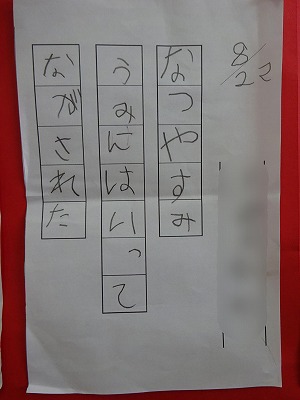 8/22
なつやすみ
うみにはいって
ながされた